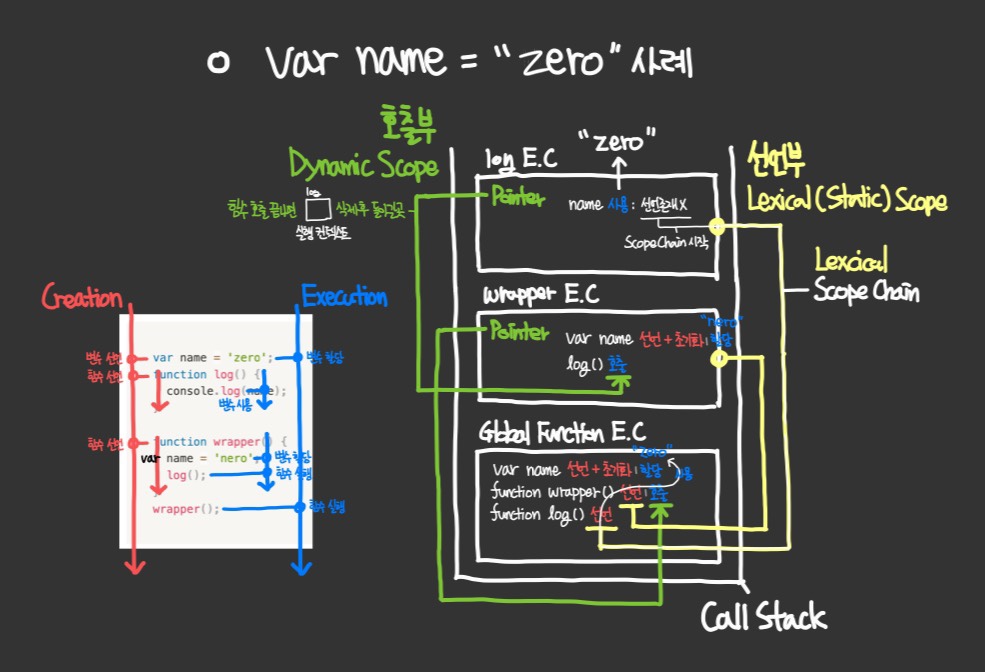 o var name = "zero" 사례
호출부
Dynamic Scope
함수 호출 끝나면 log 삭제 후 돌아갈곳
실행 컨텍스트
log E.C
"zero"
Pointer
name 사용 : 선언존재X
ScopeChain 시작
선언부
Lexical (Static) Scope
Lexcical
Scope Chain
wrapper E.C
Pointer
"nero"
var name 선언+초기화 | 할당
log() 호출
Global Function E.C
"zero"
var name 선언+초기화 | 할당
사용
function wrapper() 선언 | 호출
function log() 선언
Call Stack
Creation
Execution
변수 선언
var name = 'zero';
변수 할당
함수 선언
function log() {
console.log(name);
변수 사용
함수 선언
function wrapper() {
var name = 'nero';
변수 할당
log();
함수 실행
wrapper();
함수 실행